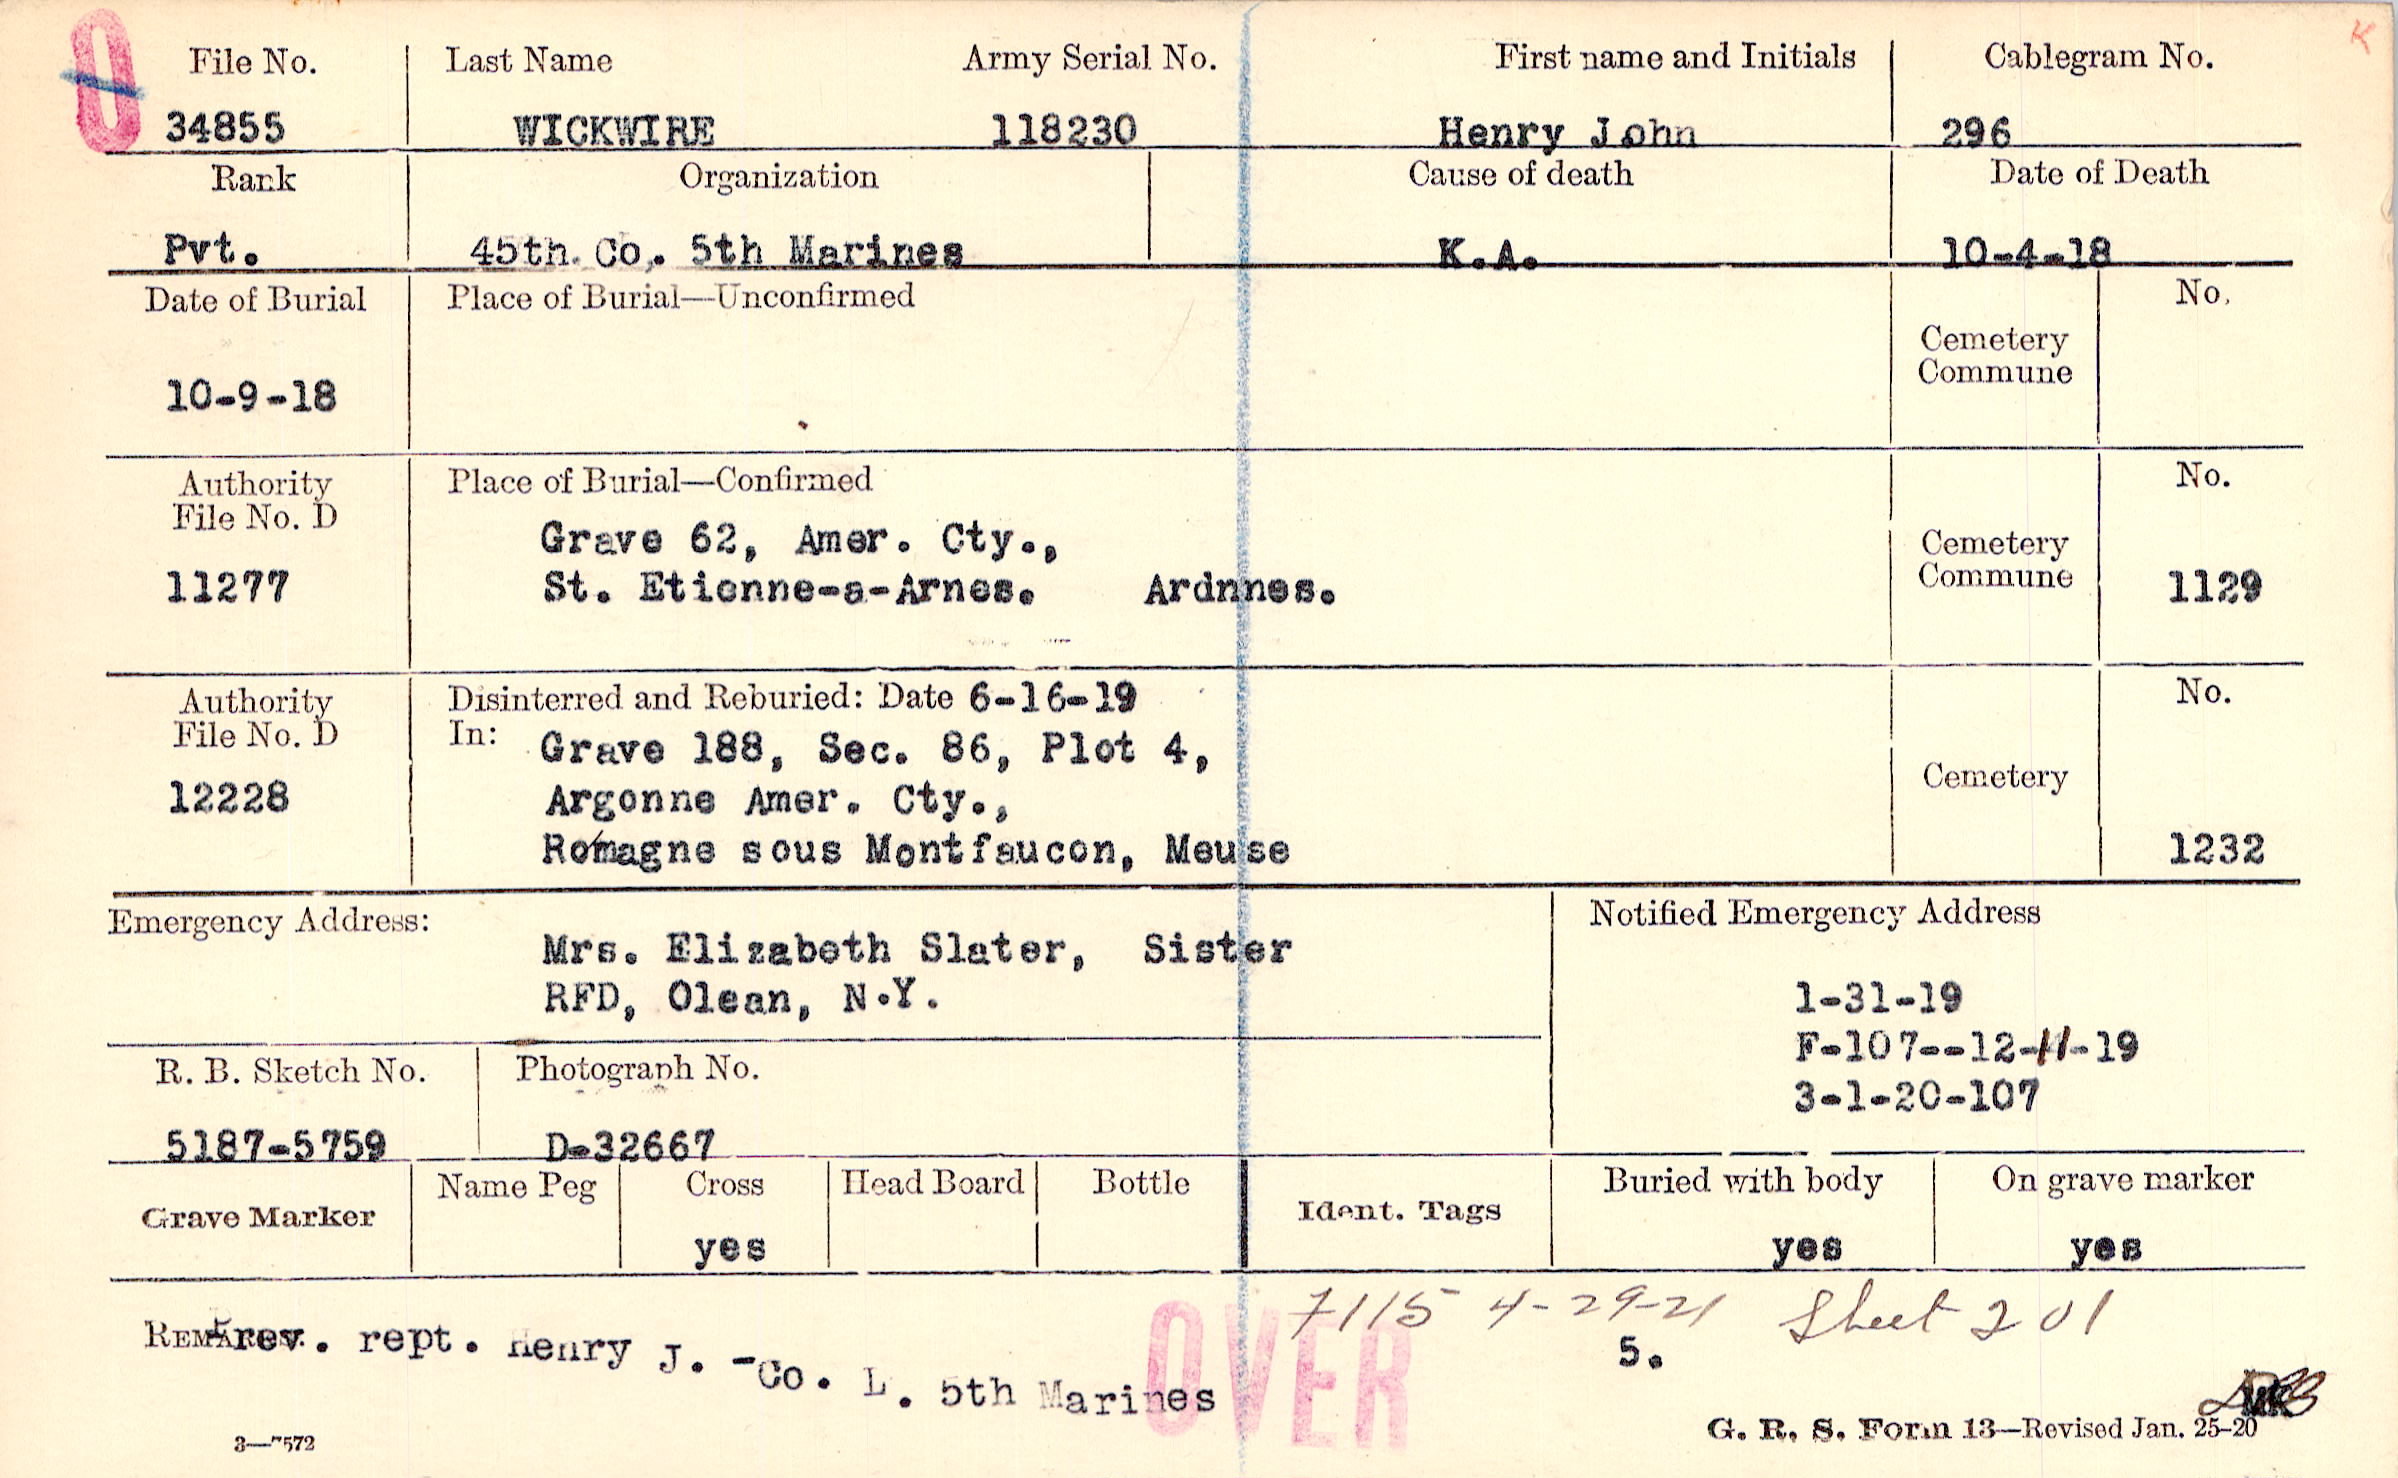 O K
File No. Last Name Army Serial No. First name and Initials Cablegram No.
34855 WICKWIRE 118230 Henry John 296
Rank Organization Cause of death Date of Death
Pvt. 45th Co. 5th Marines K.A. 10-4-18
Date of Burial Place of Burial—Unconfirmed No.
Cemetery
Commune
10-9-18
Authority Place of Burial—Confirmed No.
File No. D
Grave 62, Amer. Cty., Cemetery
11277 St. Etienne-a-Arnes. Ardnnes. Commune 1129
Authority Disinterred and Reburied: Date 6-16-19 No.
File No. D In: Grave 188, Sec. 86, Plot 4,
12228 Argonne Amer. Cty., Cemetery
Romagne sous Montfaucon, Meuse 1232
Emergency Address: Notified Emergency Address
Mrs. Elizabeth Slater, Sister
RFD, Olean, N.Y. 1-31-19
F-107--12-11-19
3-1-20-107
R. B. Sketch No. Photograph No.
5187-5759 D-32667
Grave Marker Name Peg Cross Head Board Bottle Ident. Tags Buried with body On grave marker
yes yes yes
7115 4-29-21 Sheet 201
REMARKS: Prev. rept. Henry J. -Co. L. 5th Marines 5.
OVER
3—7572 G. R. S. Form 13—Revised Jan. 25-20